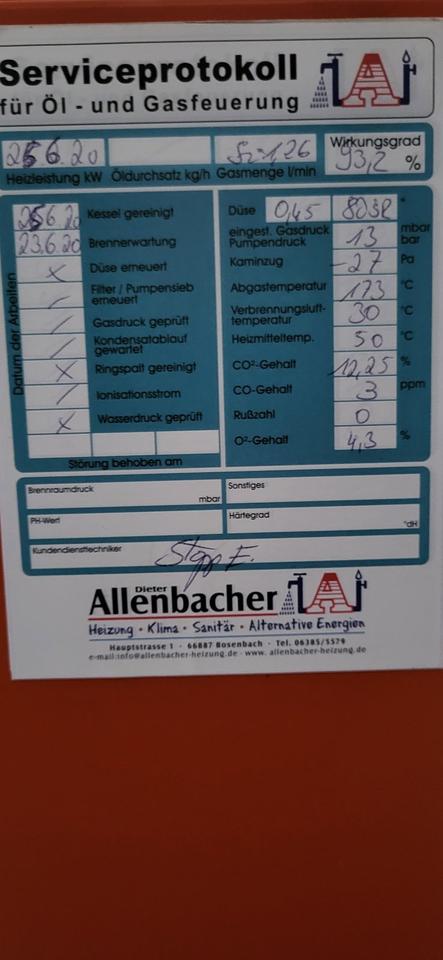 Serviceprotokoll
für Öl - und Gasfeuerung
6.20
1,26
Wirkungsgrad
93,2 %
Heizleistung kW Öldurchsatz kg/h Gasmenge l/min
Datum der Arbeiten
6.20 Kessel gereinigt
23.6.20 Brennerwartung
x Düse erneuert
/ Filter / Pumpensieb erneuert
/ Gasdruck geprüft
/ Kondensatablauf gewartet
x Ringspalt gereinigt
/ Ionisationsstrom
x Wasserdruck geprüft
Störung behoben am
Düse 0,45 80 °
eingest. Gasdruck mbar
Pumpendruck 13 bar
Kaminzug -27 Pa
Abgastemperatur 173 °C
Verbrennungsluft-
temperatur 30 °C
Heizmitteltemp. 50 °C
CO²-Gehalt 12,25 %
CO-Gehalt 3 ppm
Rußzahl 0
O²-Gehalt 4,3 %
Brennraumdruck mbar
Sonstiges
PH-Wert
Härtegrad °dH
Kundendiensttechniker
Dieter
Allenbacher
Heizung • Klima • Sanitär • Alternative Energien
Hauptstrasse 1 · 66887 Bosenbach · Tel. 06385/5579
e-mail:info@allenbacher-heizung.de - www. allenbacher-heizung.de